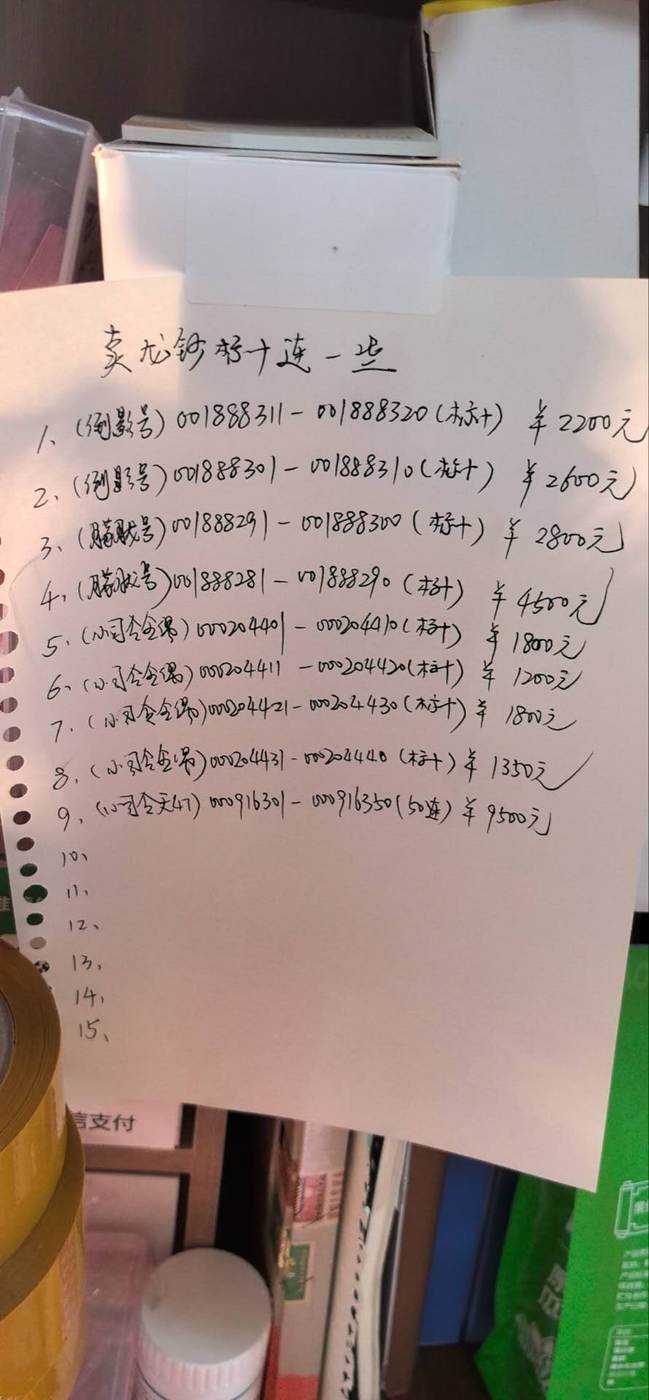 卖龙钞标十连一些
1、(倒影号) 001888311-001888320(标十) ￥2200元
2、(倒影号) 001888301-001888310(标十) ￥2600元
3、(朦胧号) 001888291-001888300(标十) ￥2800元
4、(朦胧号) 001888281-001888290(标十) ￥4500元
5、(小司令全偶) 000204401-000204410(标十) ￥1800元
6、(小司令全偶) 000204411-000204420(标十) ￥1200元
7、(小司令全偶) 000204421-000204430(标十) ￥1800元
8、(小司令全偶) 000204431-000204440(标十) ￥1350元
9、(小司令无47) 000916301-000916350(50连) ￥9500元
10、
11、
12、
13、
14、
15、
信支付